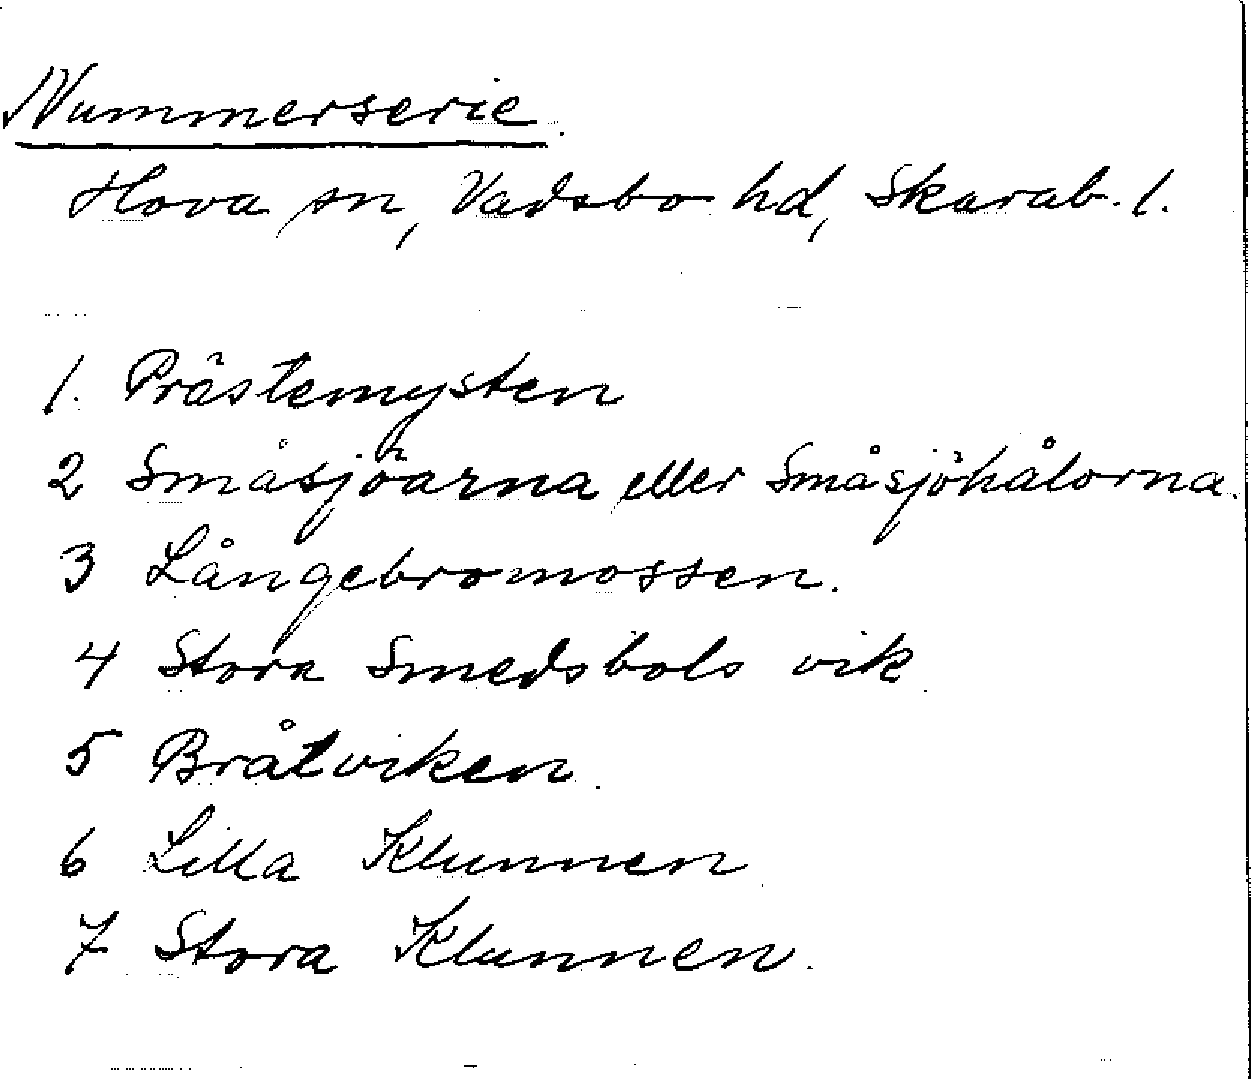 Nummerserie.
Hova sn, Vadsbo hd, Skarab. l.
1. Prästemysten
2 Småsjöarna eller Småsjöhålorna.
3 Långebromossen.
4 Stora Smedsbols vik
5 Bråtviken.
6 Lilla Klunnen
7 Stora Klunnen.